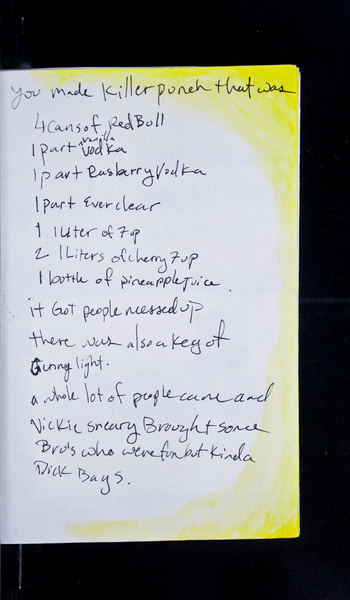 you made Killer punch that was
4 cans of RedBull
1 part vanilla Vodka
1 part Rasberry Vodka
1 part Everclear
1 1 Liter of 7up
2 1 Liters of cherry 7up
1 bottle of pineapple juice.
it Got people messed up
there was also a keg of
light.
a whole lot of people came and
Vickie Brought some
Bro's who were fun but Kinda
Dick Bags.